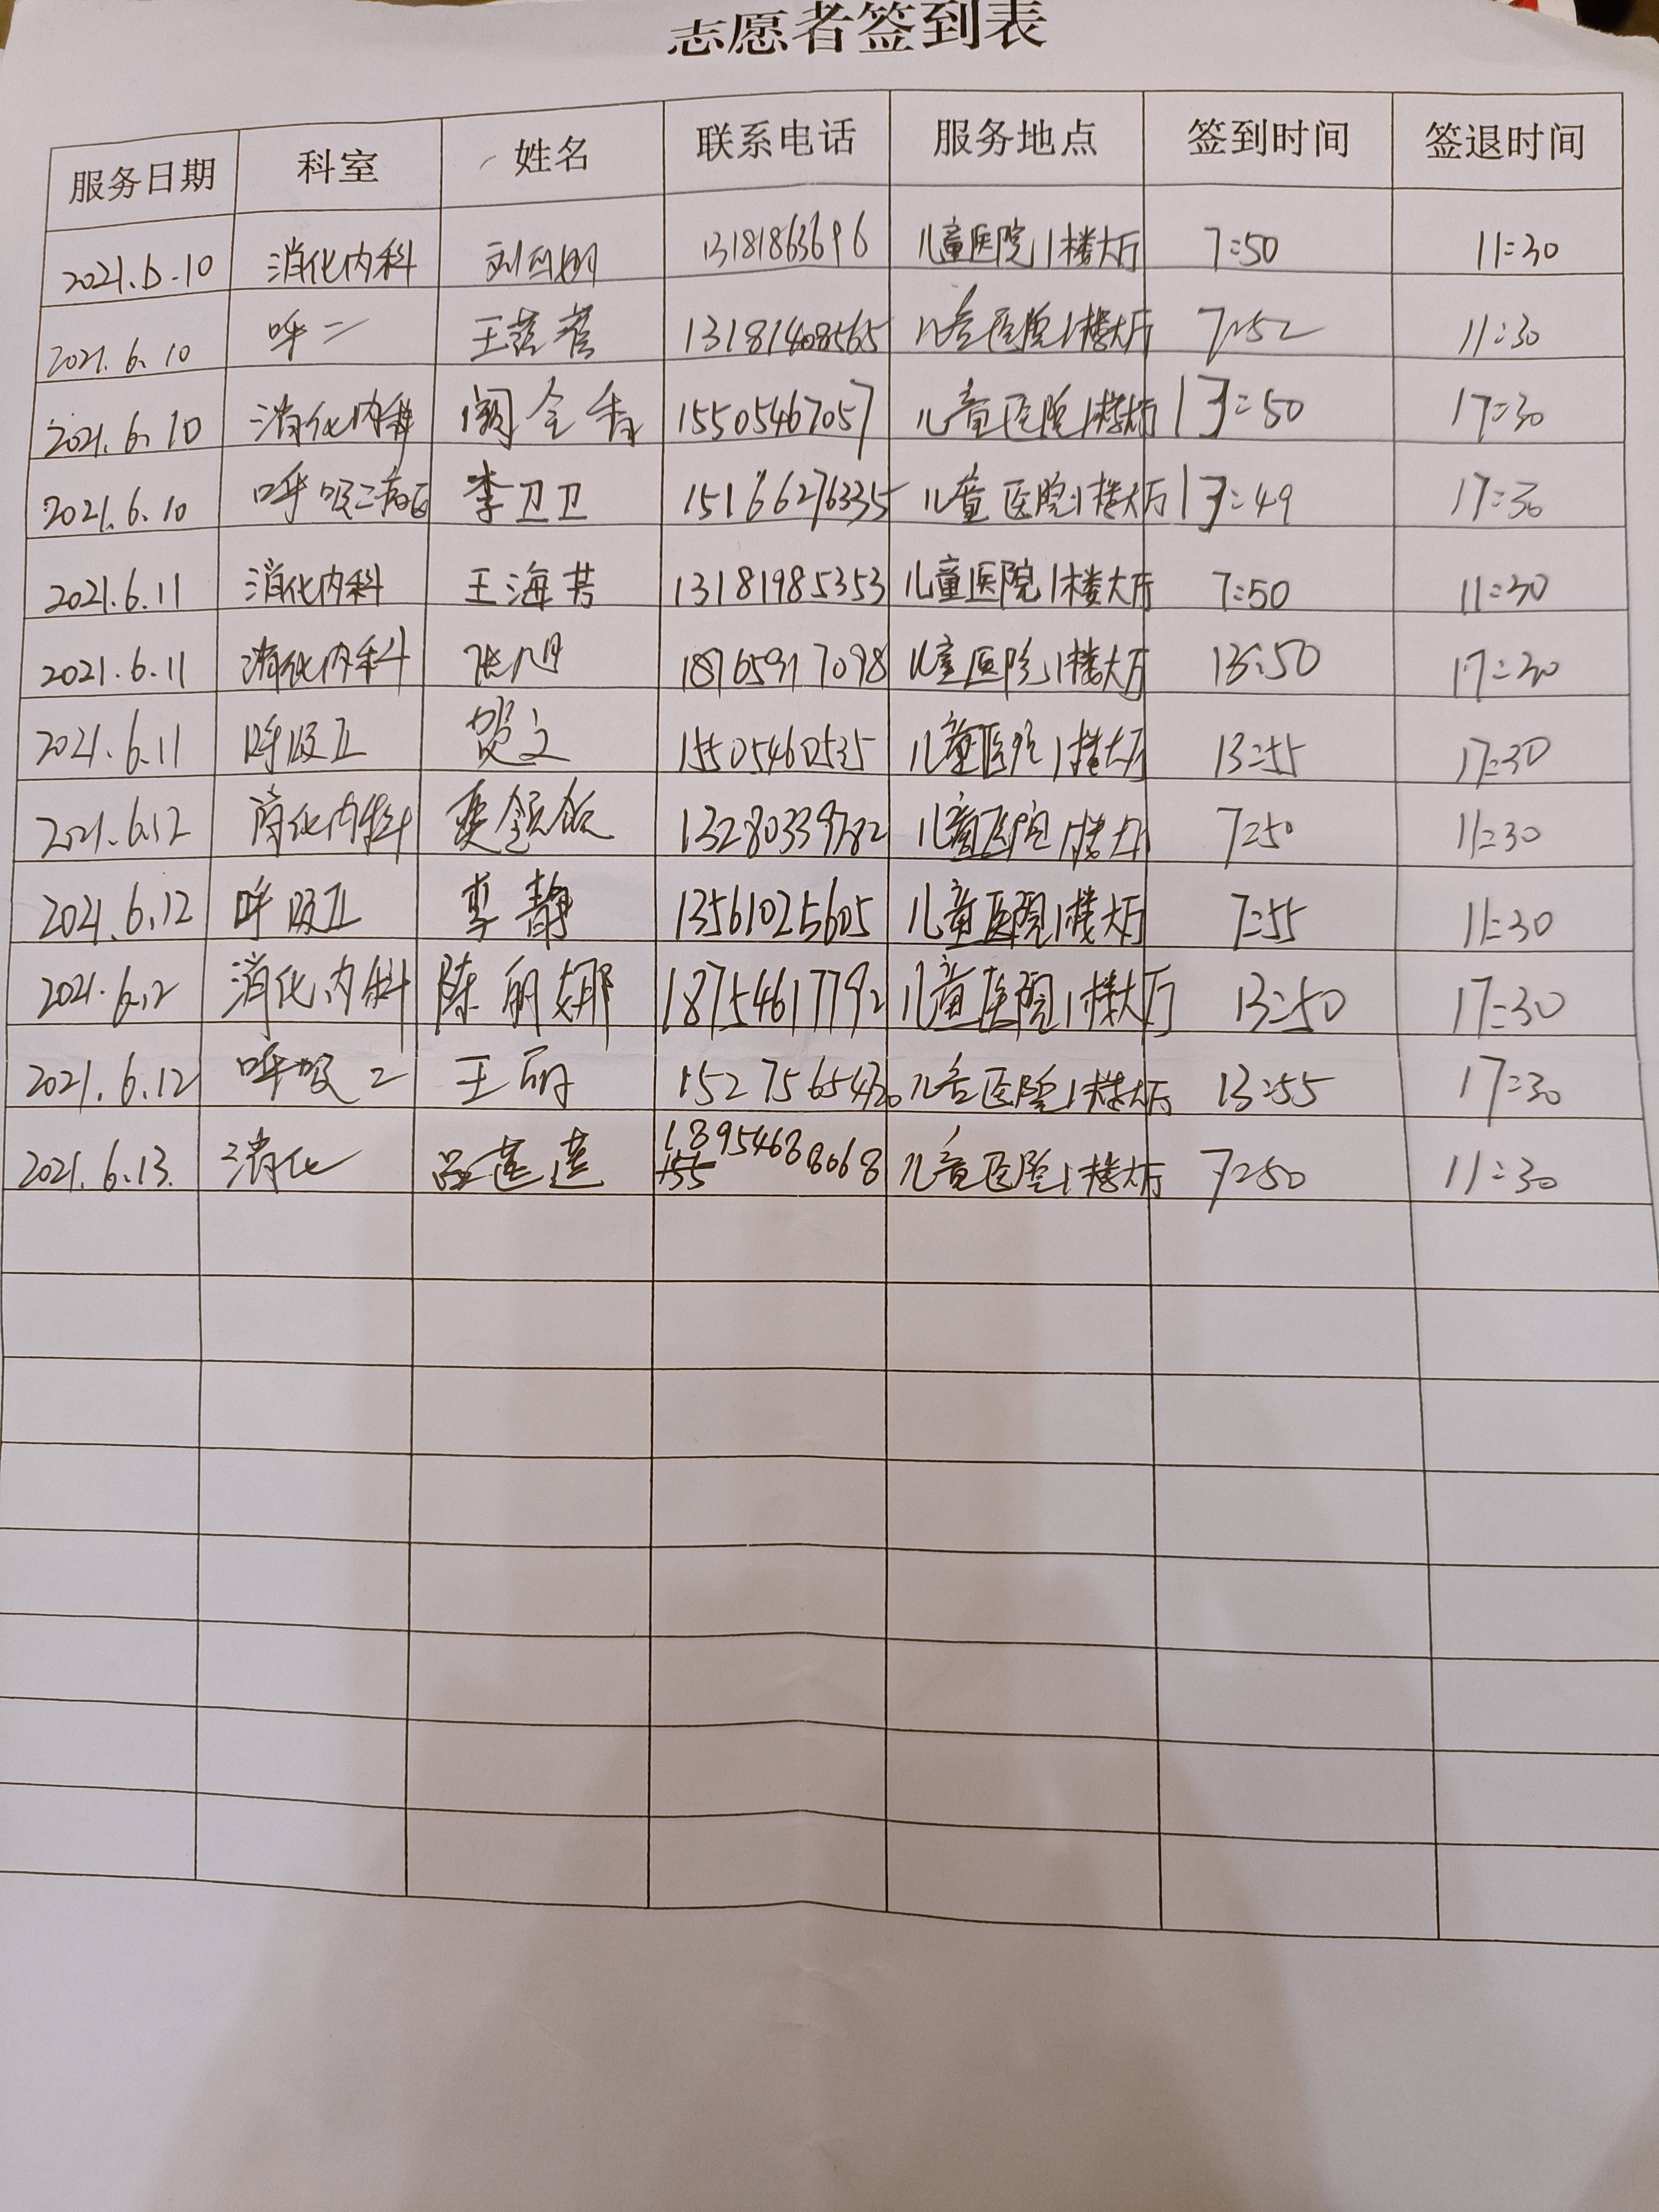 志愿者签到表
服务日期 科室 姓名 联系电话 服务地点 签到时间 签退时间
2021.6.10 消化内科 13181863696 儿童医院1楼大厅 7:50 11:30
2021.6.10 呼二 13181408565 儿童医院1楼大厅 7:52 11:30
2021.6.10 消化内科 15505467057 儿童医院1楼大厅 13:50 17:30
2021.6.10 呼吸二病区 李卫卫 15166276335 儿童医院1楼大厅 13:49 17:30
2021.6.11 消化内科 王海芳 13181985353 儿童医院1楼大厅 7:50 11:30
2021.6.11 消化内科 张旭 18765917098 儿童医院1楼大厅 13:50 17:30
2021.6.11 呼吸二 贺文 15505460535 儿童医院1楼大厅 13:55 17:30
2021.6.12 消化内科 13280339782 儿童医院1楼大厅 7:50 11:30
2021.6.12 呼吸二 李静 13561025605 儿童医院1楼大厅 7:55 11:30
2021.6.12 消化内科 陈丽娜 18754617792 儿童医院1楼大厅 13:50 17:30
2021.6.12 呼吸二 王丽 15275654320 儿童医院1楼大厅 13:55 17:30
2021.6.13. 消化 吕莲莲 18954688068 儿童医院1楼大厅 7:50 11:30